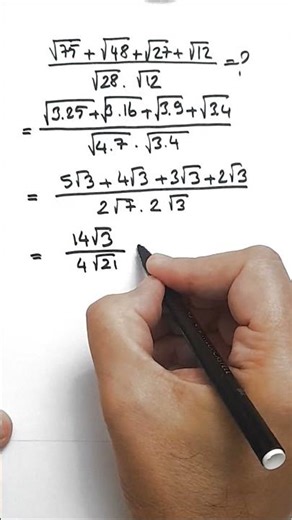 (√75 + √48 + √27 + √12) / (√28 . √12) = ?
= (√3.25 + √3.16 + √3.9 + √3.4) / (√4.7 . √3.4)
= (5√3 + 4√3 + 3√3 + 2√3) / (2√7 . 2√3)
= 14√3 / 4√21